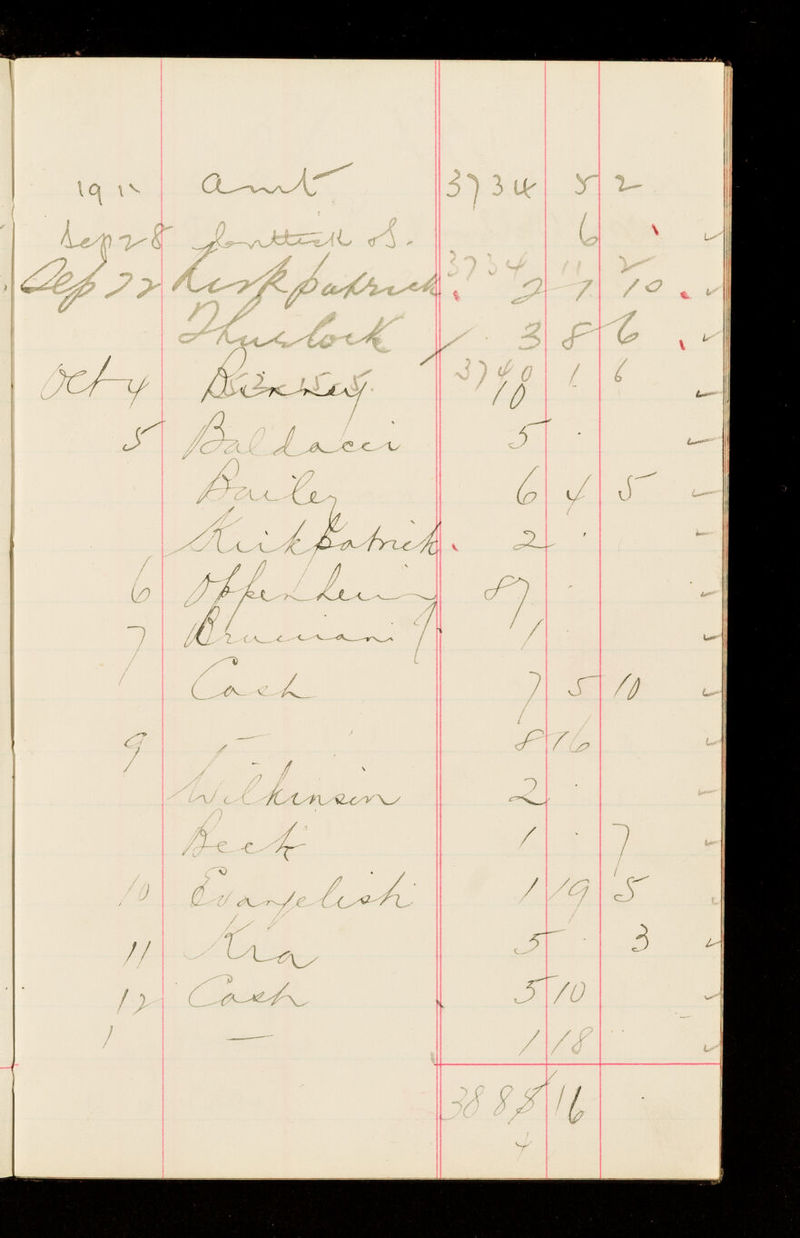 1911 amt 3734 5 2
Sep 28 6
3734 11 2
Sep 22 Kirkpatrick 2 7 10
Thurlock 3 8 6
3740 1 6
Oct 4 Binney 10
5 Baldacci 5 ·
Bailey 6 4 5
Kirkpatrick 2 ·
6 Oppenheim 87 ·
7 1
Cash 7 5 10
9 — 8 16
Wilkinson 2 ·
Beck 1 · 7
10 Evangelisti 1 19 5
11 Kra 5 · 3
12 Cash 5 10
— 1 18
388 16
4